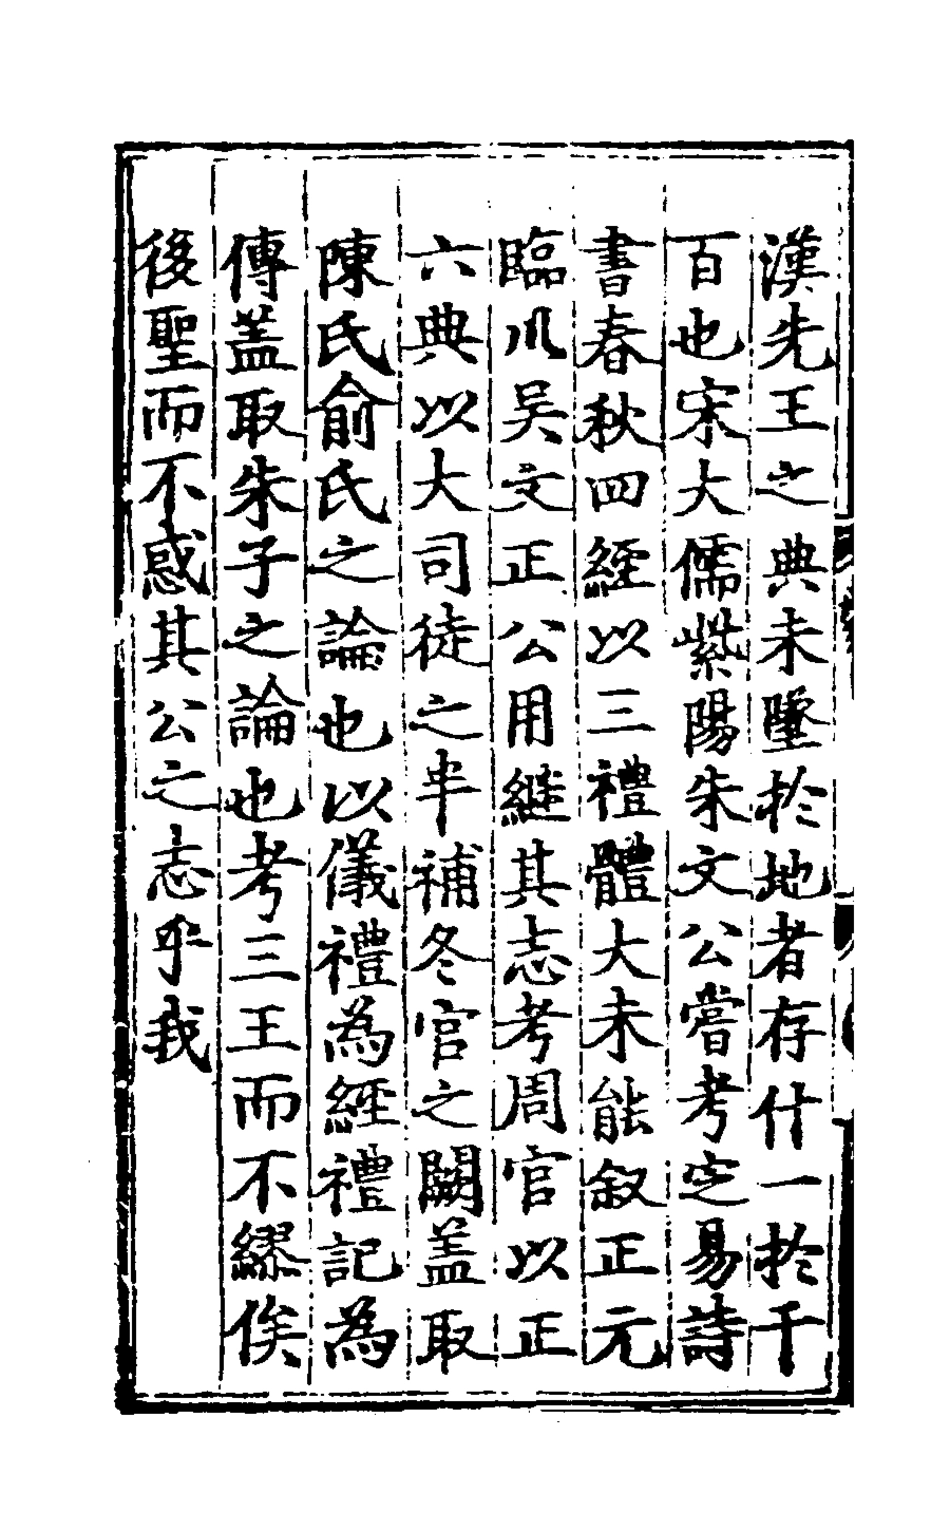 漢先王之典未墜於地者存什一於千
百也宋大儒紫陽朱文公嘗考定易詩
書春秋四經以三禮體大未能叙正元
臨川吴文正公用繼其志考周官以正
六典以大司徒之半補冬官之闕盖取
陳氏俞氏之論也以儀禮為經禮記為
傳盖取朱子之論也考三王而不繆俟
後聖而不惑其公之志乎我